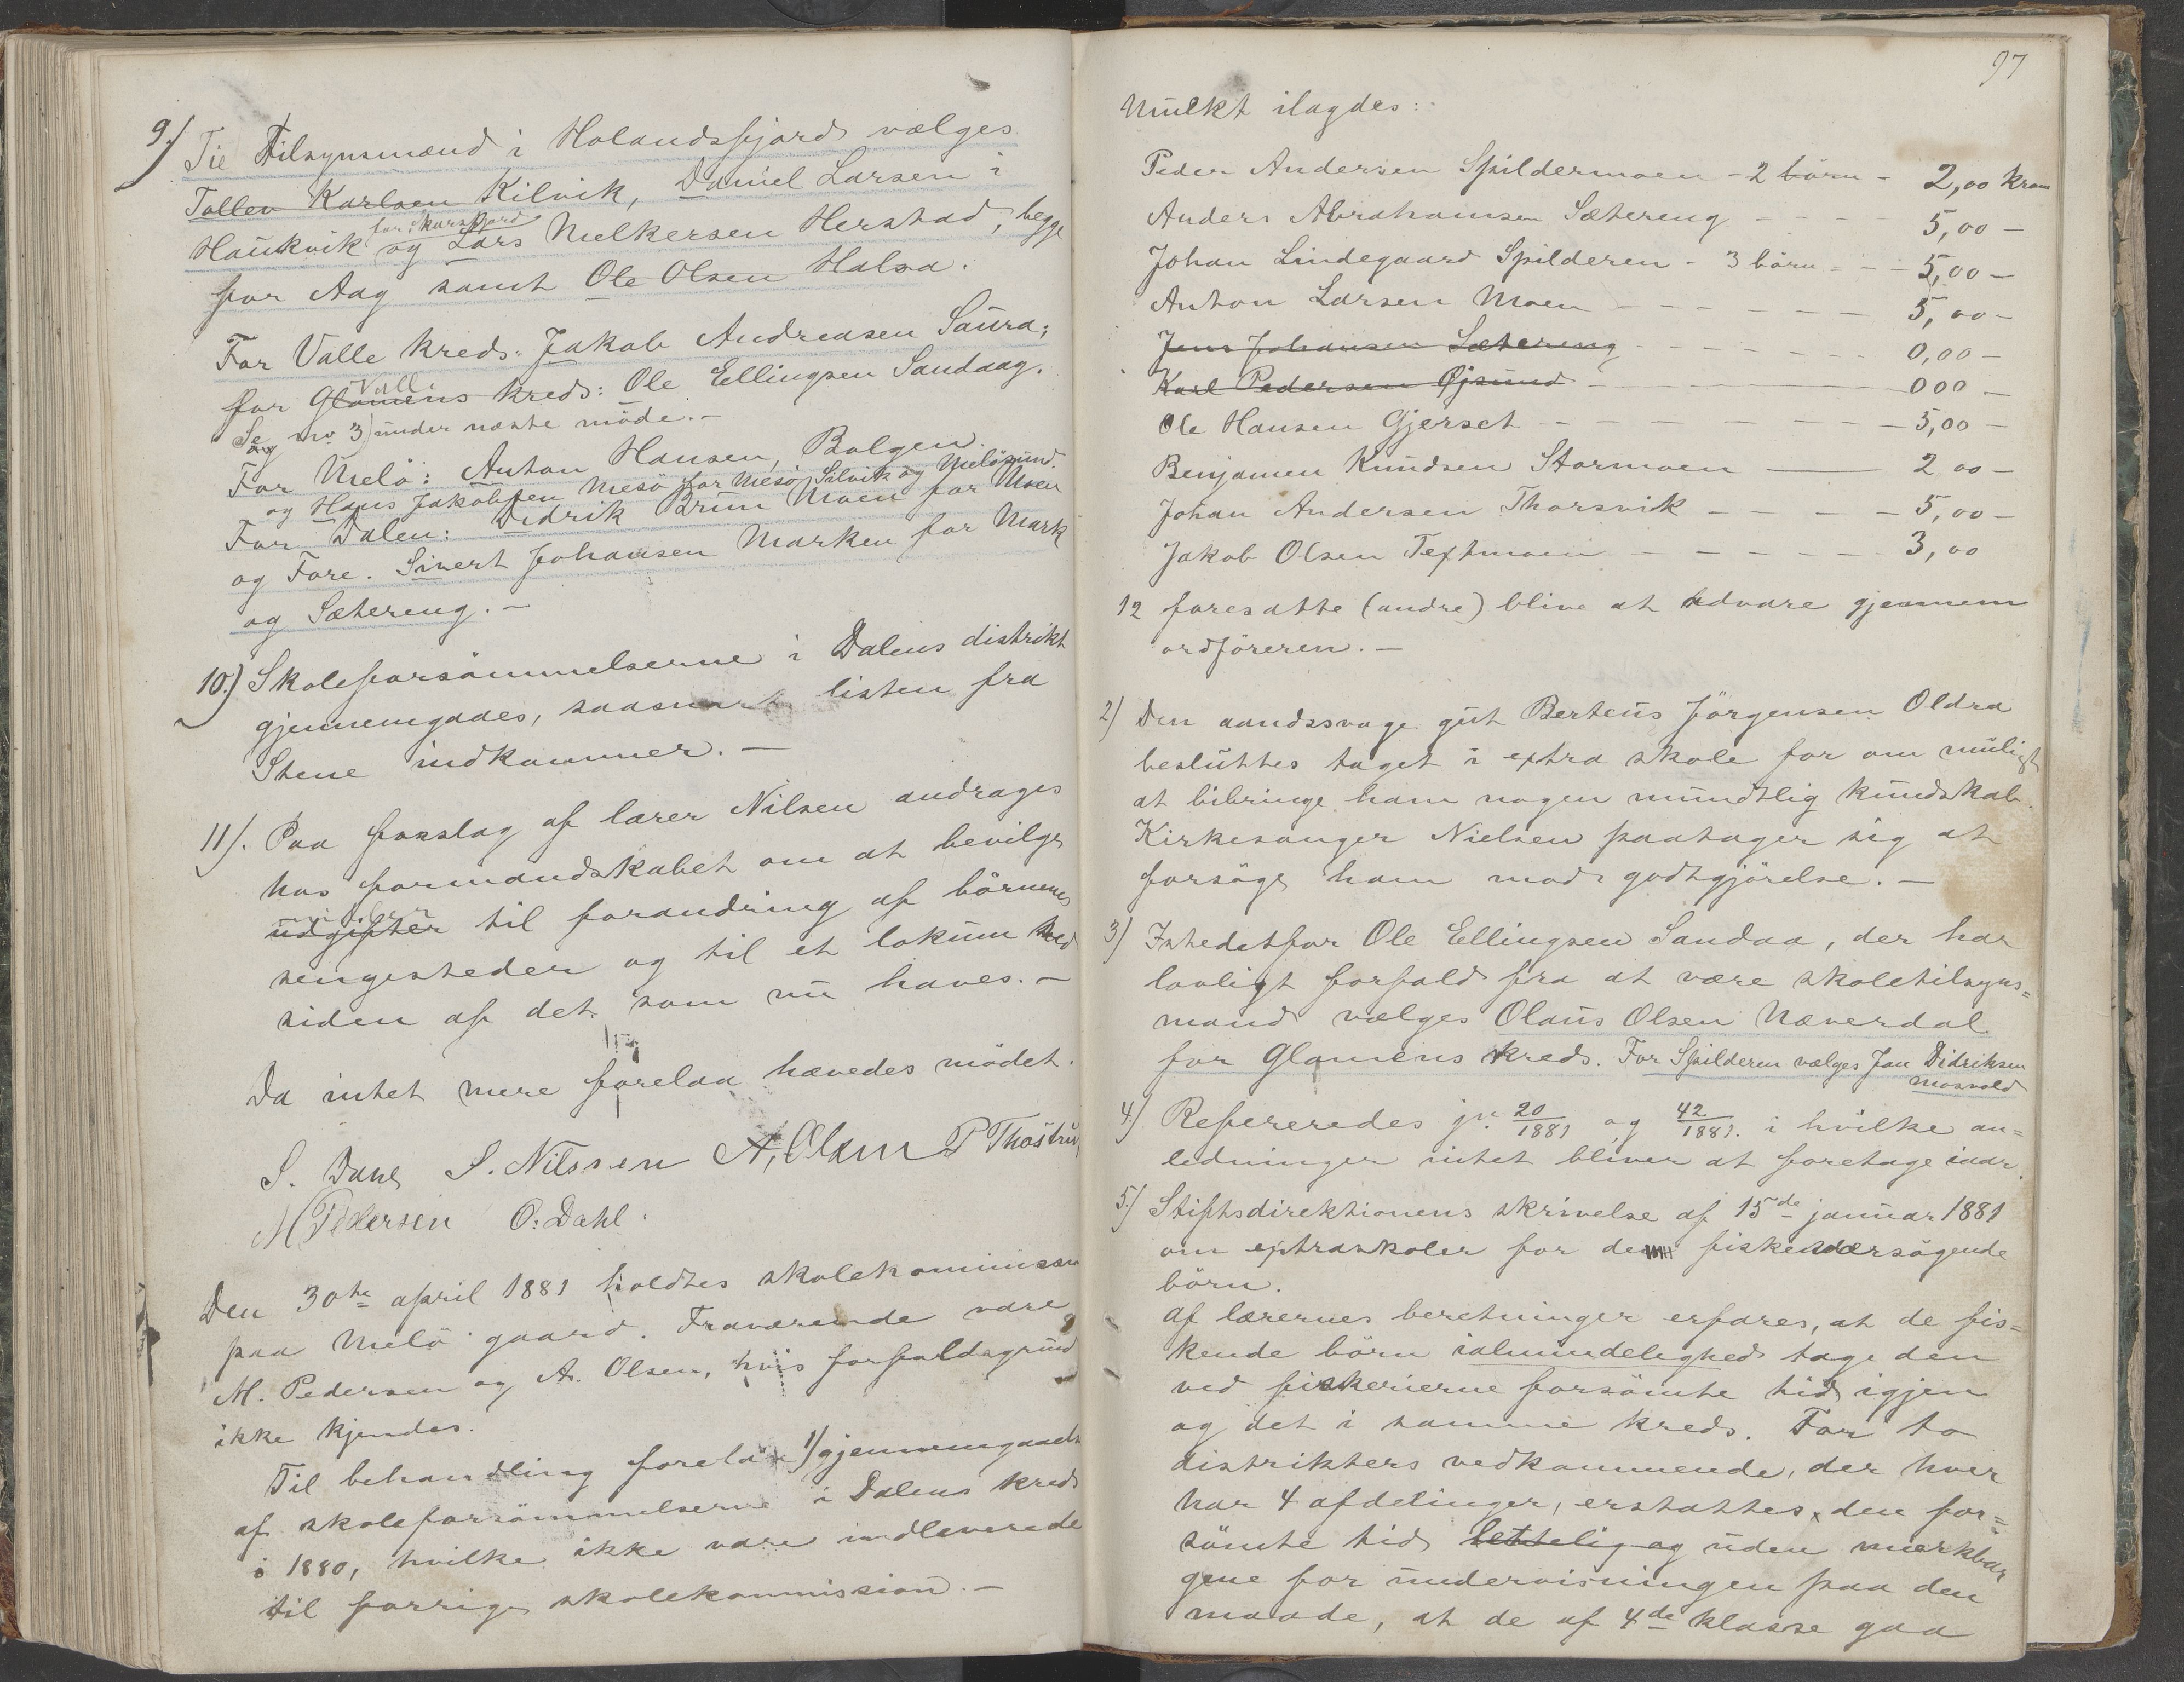 9.) Til Tilsynsmænd i Holandsfjord vælges
Tollev Karlsen Kilvik, Daniel Larsen i
for Skarsfjord
Haukvik og Lars Melkersen Herstad, begge
for Aag samt Ole Olsen Halsa.
For Valle kreds: Jakob Andreasen Saura;
Valle
for Glomens kreds: Ole Ellingsen Sandaag.
Se og no. 3) under næste möde.-
For Melö: Anton Hansen, Bolgen.
og Hans Jakobsen Mesö for Mesö, Silvik og Melösund.
For Dalen: Didrik Brun Moen for Moen
og Fore. Sivert Johansen Marken for Mark
og Sætereng.-
10.) Skoleforsömmelserne i Dalens distrikt
gjennemgaaes, saasnart listen fra
Stene indkommer.-
11). Paa forslag af lærer Nilsen andrages
hos formandskabet om at bevilge
midler
udgifter til forandring af börnenes
sengesteder og til et lokum ved
siden af det som nu haves.-
Da intet mere forelaa hævedes mödet.
S. Dahl S. Nilssen A. Olsen P Thostrup
M Pedersen O. Dahl.
Den 30te april 1881 holdtes skolekommission
paa Melö gaard. Fraværende vare
M. Pedersen og A. Olsen, hvis forfaldsgrund
ikke kjendes.
Til behandling forelaa 1) gjennemgaaelse
af skoleforsömmelserne i Dalens kreds
i 1880, hvilke ikke vare indleverede
til forrige skolekommission.-
97
Mulkt ilagdes:
Peder Andersen Spildermoen - 2 börn - 2,00 kron
Anders Abrahamsen Sætereng - - - 5,00 -
Johan Lindegaard Spilderen - 3 börn - - - 5,00 -
Anton Larsen Moen - - - - - - 5,00 -
Jens Johansen Sætereng - - - - - - 0,00 -
Karl Pedersen Öjsund - 000 -
Ole Hansen Gjerset - - - - - - 5,00 -
Benjamen Knudsen Stormoen - 2 00 -
Johan Andersen Thorsvik - - - - 5,00 -
Jakob Olsen Textmoen - - - - - 3,00
12 foresatte (andre) blive at advare gjennem
ordföreren.-
2) Den aandssvage gut Berteus Jörgensen Oldra
besluttes taget i extra skole for om muligt
at bibringe ham nogen mundtlig kundskab.
Kirkesanger Nielsen paatager sig at
forsöge ham mod godtgjörelse.-
3) Istedetfor Ole Ellingsen Sandaa, der har
lovligt forfald fra at være skoletilsyns=
mand vælges Olaus Olsen Næverdal
for Glomens kreds. For Spilderen vælges Jan Didriksen
Mosvold
4) Refereredes jr. 20/1881 og 42/1881. i hvilke an=
ledninger intet bliver at foretage iaar.
5.) Stiftsdirektionens skrivelse af 15de januar 1881
om extraskoler for de fiskeværsögende
börn.
af lærernes beretninger erfares, at de fis=
kende börn ialmindelighed tage den
ved fiskerierne forsömte tid igjen
og det i samme kreds. For to
distrikters vedkommende, der hver
har 4 afdelinger, erstattes den for=
sömte tid lettelig og uden mærkbar
gene for undervisningen paa den
maade, at de af 4de klasse gaa